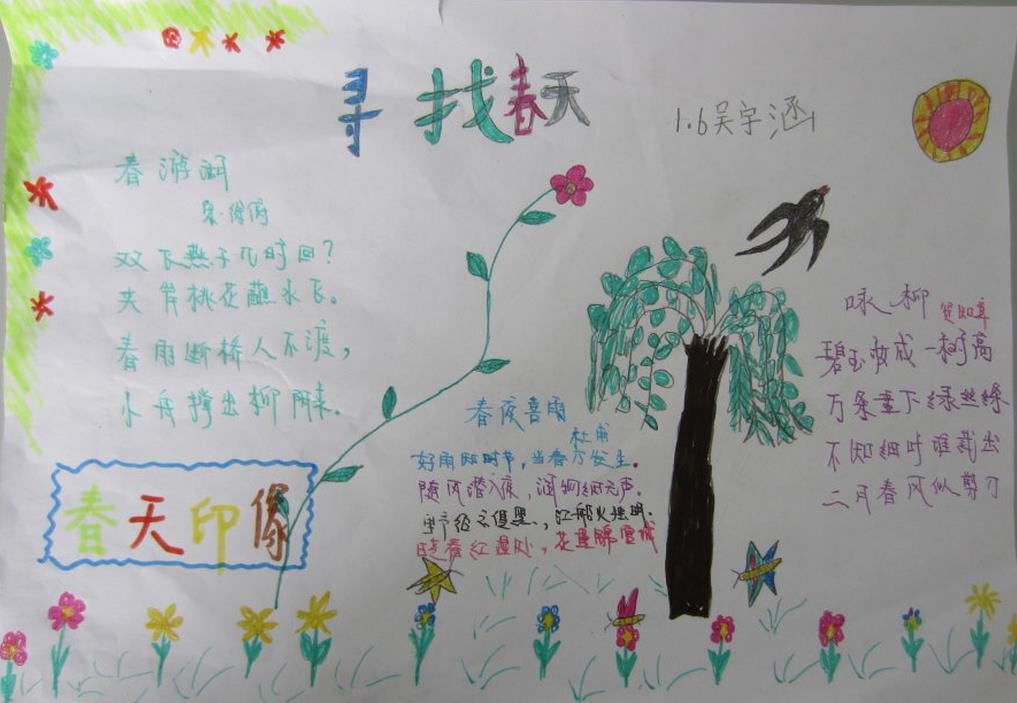 寻找春天
1.6吴宇涵
春游湖
宋·徐俯
双飞燕子几时回?
夹岸桃花蘸水飞。
春雨断桥人不渡,
小舟撑出柳阴来。
春天印像
春夜喜雨
杜甫
好雨知时节,当春乃发生。
随风潜入夜,润物细无声。
野径云俱黑,江船火独明。
晓看红湿处,花重锦官城
咏柳 贺知章
碧玉妆成一树高
万条垂下绿丝绦
不知细叶谁裁出
二月春风似剪刀